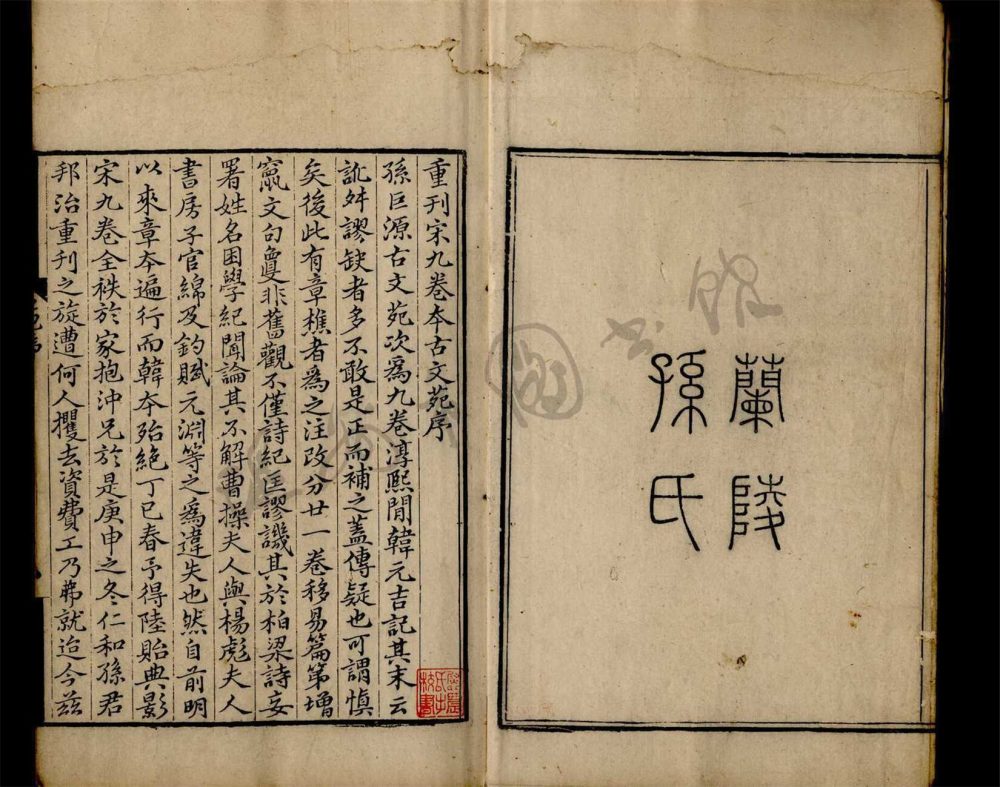 蘭陵
孫氏
重刊宋九卷夲古文苑序
孫巨源古文苑次爲九卷淳熙閒韓元吉記其末云
訛舛謬缺者多不敢是正而補之蓋傳疑也可謂慎
矣後此有章樵者爲之注改分廿一卷移易篇第增
竄文句敻非舊觀不僅詩紀匡謬譏其於柏梁詩妄
署姓名困學紀聞論其不解曹操夫人與楊彪夫人
書房子官綿及釣賦元淵等之爲違失也然自前明
以來章夲遍行而韓夲殆絕丁巳春予得陸貽典影
宋九卷全袟於家抱沖兄於是庚申之冬仁和孫君
邦治重刊之旋遭何人攫去資費工乃弗就迨今茲